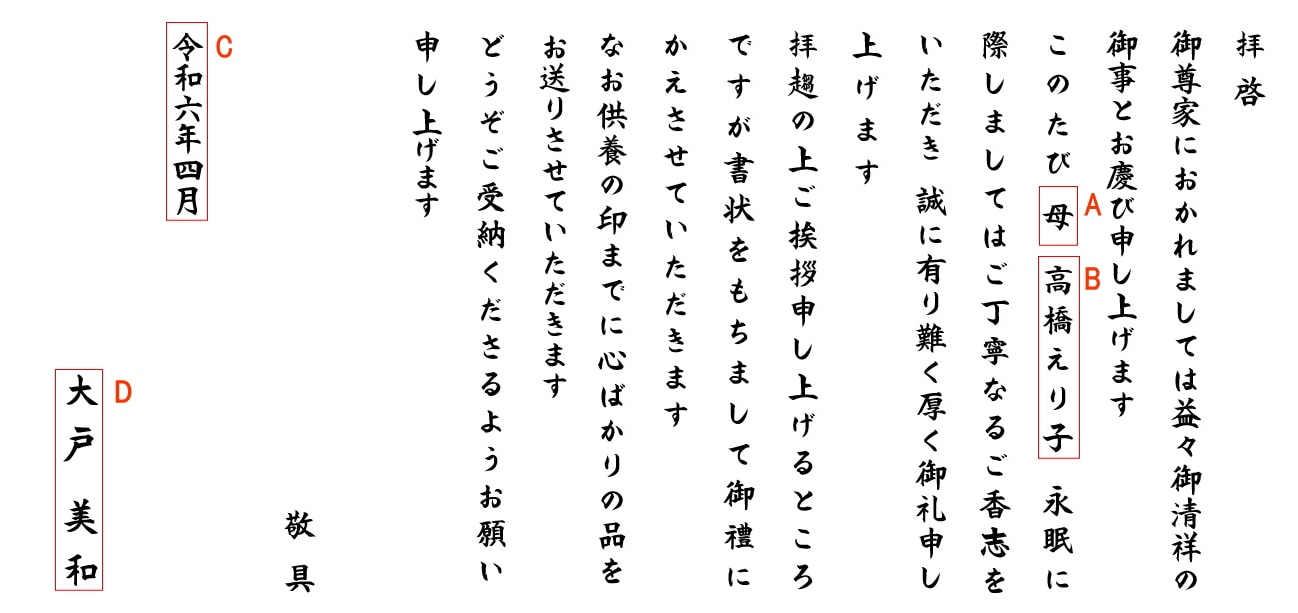 拝啓
御尊家におかれましては益々御清祥の
御事とお慶び申し上げます
このたび 母 高橋えり子 永眠に
A
B
際しましてはご丁寧なるご香志を
いただき 誠に有り難く厚く御礼申し
上げます
拝趨の上ご挨拶申し上げるところ
ですが書状をもちまして御禮に
かえさせていただきます
なお供養の印までに心ばかりの品を
お送りさせていただきます
どうぞご受納くださるようお願い
申し上げます
敬具
令和六年四月
C
大戸 美和
D